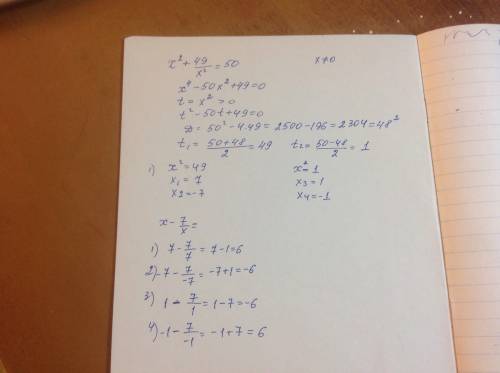 x² + 49/x² = 50    x≠0
x⁴ - 50x² + 49 = 0
t = x² > 0
t² - 50t + 49 = 0
D = 50² - 4·49 = 2500 - 196 = 2304 = 48²
t₁ = (50+48)/2 = 49    t₂ = (50-48)/2 = 1
1) x² = 49    x² = 1
x₁ = 7    x₃ = 1
x₂ = -7    x₄ = -1
x - 7/x =
1) 7 - 7/7 = 7-1 = 6
2) -7 - 7/-7 = -7+1 = -6
3) 1 - 7/1 = 1-7 = -6
4) -1 - 7/-1 = -1+7 = 6